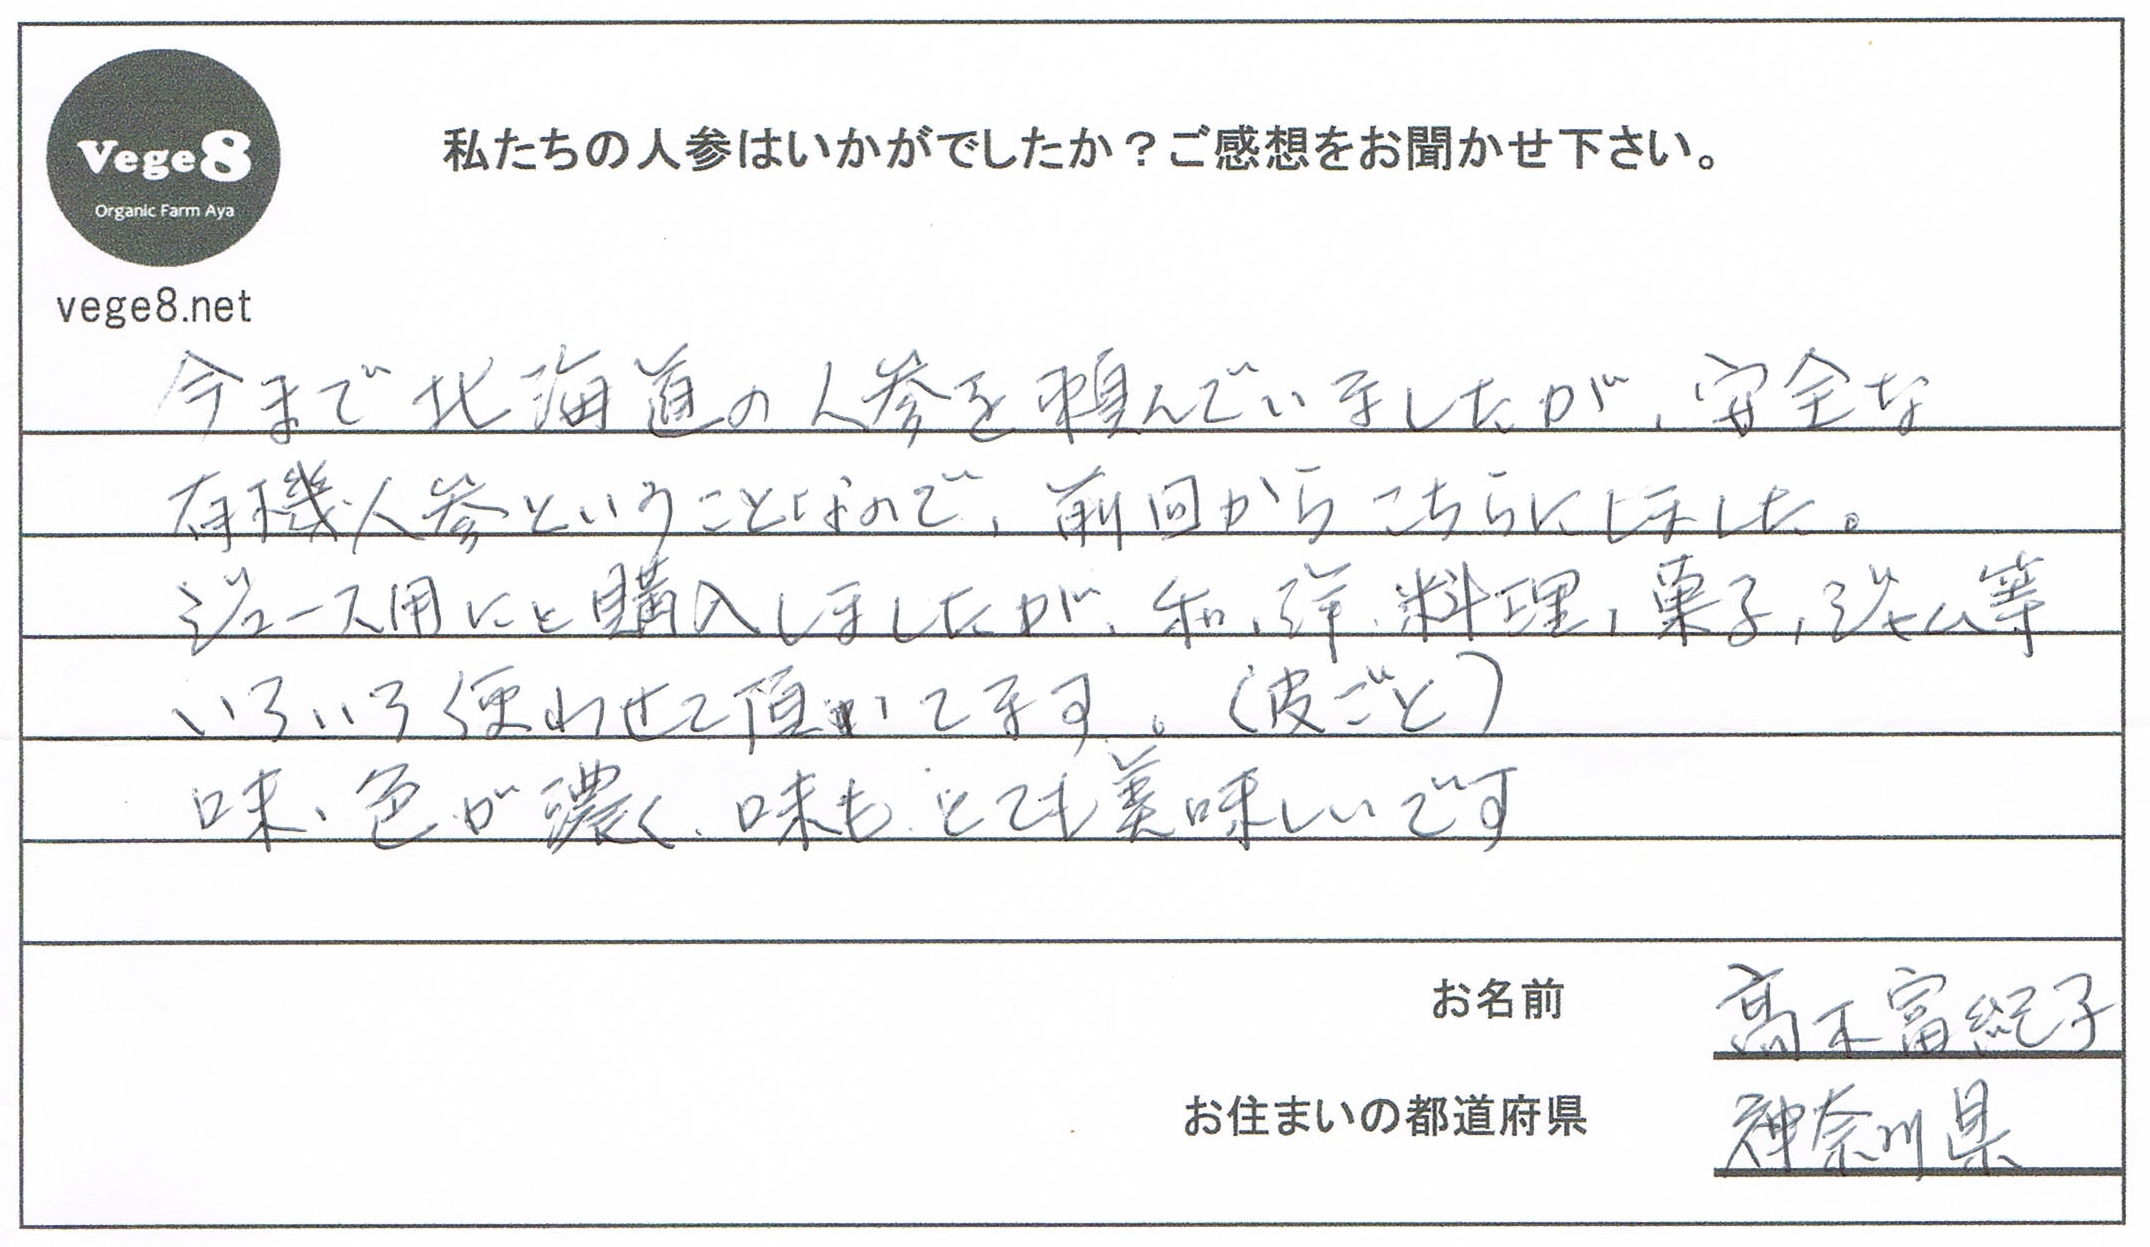 Vege8
Organic Farm Aya
vege8.net
私たちの人参はいかがでしたか？ご感想をお聞かせ下さい。
今まで北海道の人参を頼んでいましたが、安全な
有機人参ということなので、前回からこちらにしました。
ジュース用にと購入しましたが、和、洋、料理、菓子、ジャム等
いろいろ使わせて頂いてます。（皮ごと）
味、色が濃く、味もとても美味しいです
お名前 高木富紀子
お住まいの都道府県 神奈川県